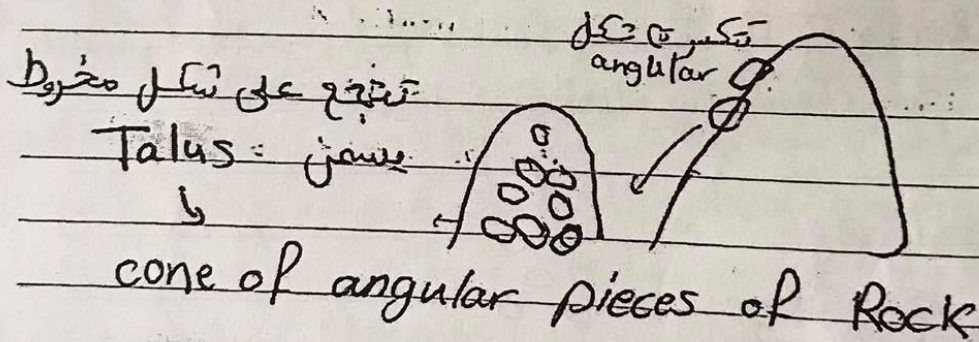 تكسر بشكل
angular
تتجمع على شكل مخروط
Talus : يسمى
cone of angular pieces of Rock